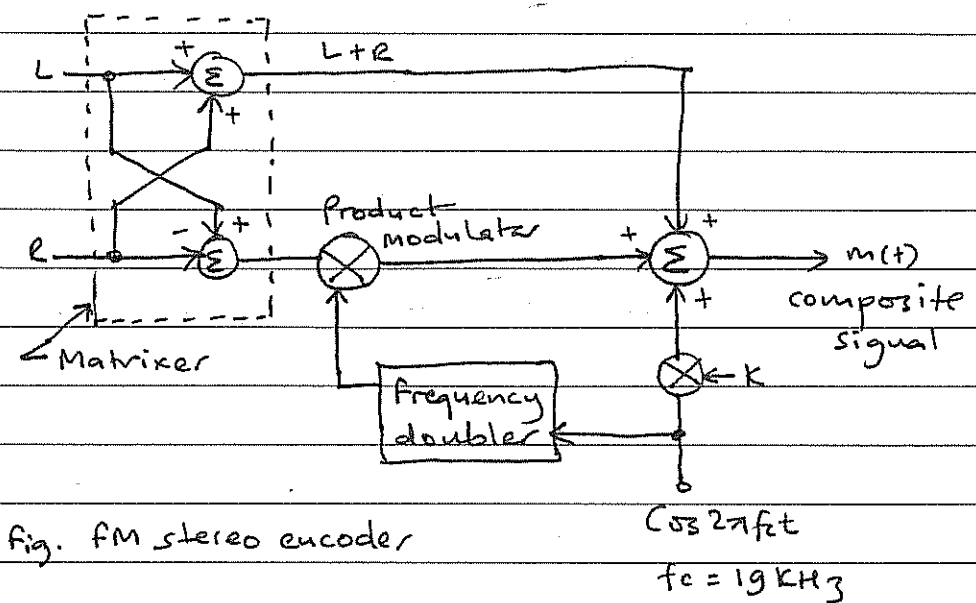 L
+
Σ
L+R
+
R
-
+
Σ
Product
modulator
+
+
Σ
+
m(t)
composite
signal
Matrixer
K
Frequency
doubler
Fig. FM stereo encoder
Cos 2πfct
fc = 19 KHz